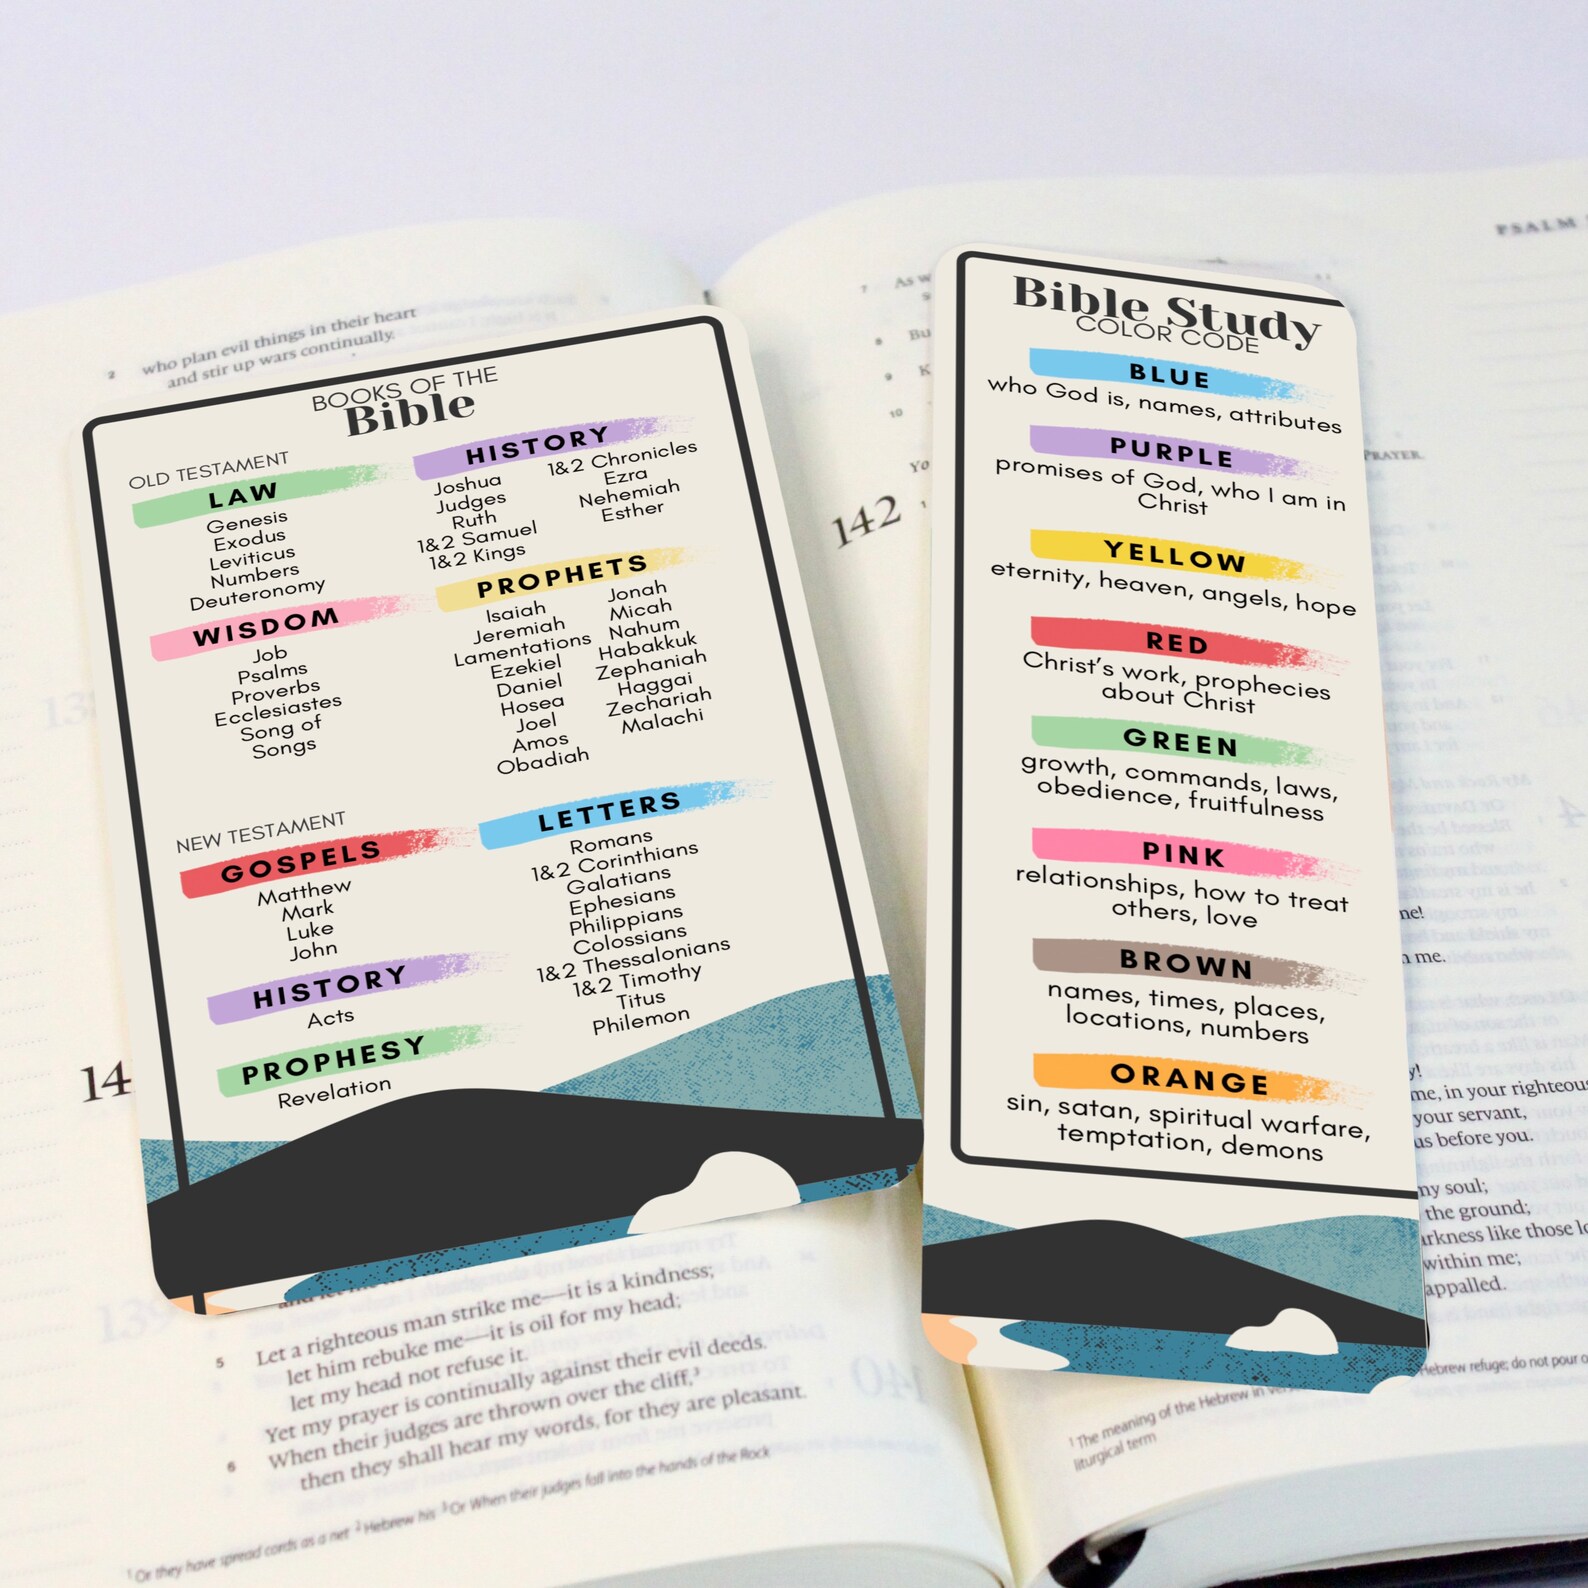 who plan evil things in their heart
and stir up wars continually.
BOOKS OF THE
Bible
OLD TESTAMENT
LAW
Genesis
Exodus
Leviticus
Numbers
Deuteronomy
WISDOM
Job
Psalms
Proverbs
Ecclesiastes
Song of
Songs
HISTORY
Joshua
Judges
Ruth
1&2 Samuel
1&2 Kings
1&2 Chronicles
Ezra
Nehemiah
Esther
PROPHETS
Isaiah
Jeremiah
Lamentations
Ezekiel
Daniel
Hosea
Joel
Amos
Obadiah
Jonah
Micah
Nahum
Habakkuk
Zephaniah
Haggai
Zechariah
Malachi
NEW TESTAMENT
GOSPELS
Matthew
Mark
Luke
John
HISTORY
Acts
PROPHESY
Revelation
LETTERS
Romans
1&2 Corinthians
Galatians
Ephesians
Philippians
Colossians
1&2 Thessalonians
1&2 Timothy
Titus
Philemon
14
5 Let a righteous man strike me—it is a kindness;
let him rebuke me—it is oil for my head;
let my head not refuse it.
Yet my prayer is continually against their evil deeds.
6 When their judges are thrown over the cliff,³
then they shall hear my words, for they are pleasant.
¹ Or they have spread cords as a net ² Hebrew his ³ Or When their judges fall into the hands of the Rock
PSALM
7 As
8 Bu
9 K
10
Yo
142
PRAYER.
Bible Study
COLOR CODE
BLUE
who God is, names, attributes
PURPLE
promises of God, who I am in
Christ
YELLOW
eternity, heaven, angels, hope
RED
Christ's work, prophecies
about Christ
GREEN
growth, commands, laws,
obedience, fruitfulness
PINK
relationships, how to treat
others, love
BROWN
names, times, places,
locations, numbers
ORANGE
sin, satan, spiritual warfare,
temptation, demons
me!
me.
me, in your righteous
your servant,
us before you.
my soul;
the ground;
darkness like those lo
within me;
appalled.
¹ The meaning of the Hebrew in
liturgical term
Hebrew refuge; do not pour o